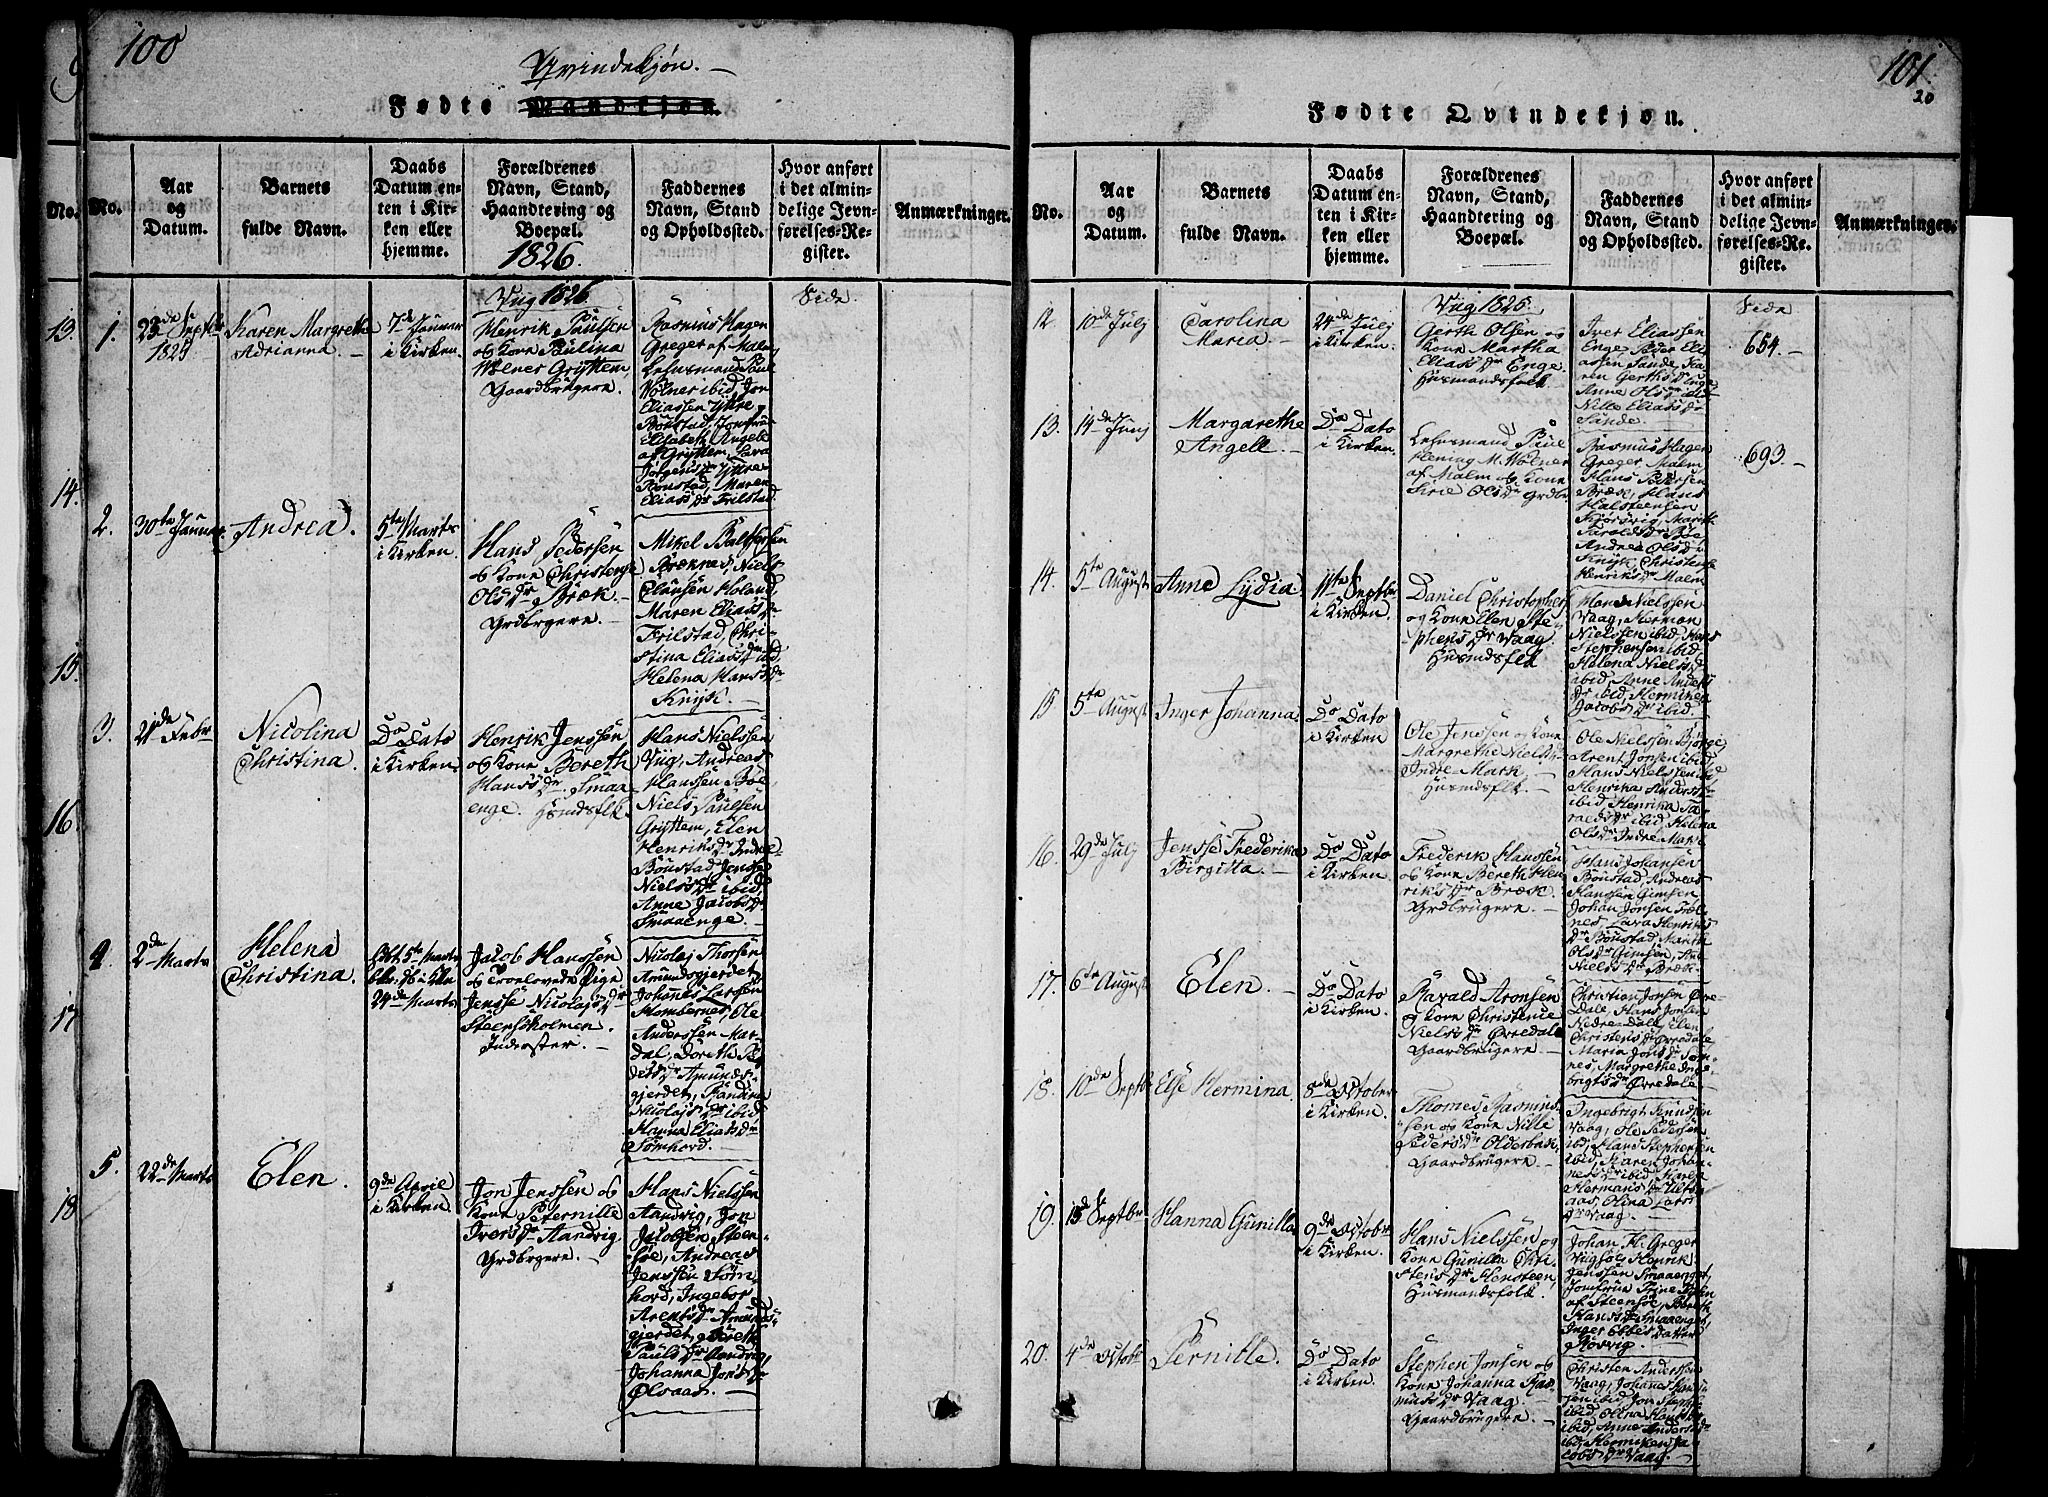 100
Qvindekjøn. —
Fødte Mandkjøn.
No.
Aar
og
Datum.
Barnets
fulde Navn.
Daabs
Datum en-
ten i Kir-
ken eller
hjemme.
Forældrenes
Navn, Stand,
Haandtering og
Boepæl.
1826.
Faddernes
Navn, Stand
og Opholdssted.
Hvor anført
i det almin-
delige Jevn-
førelses-Re-
gister.
Anmærkninger.
Viig 1826.
Side
1.
23de Septbr
1825
Karen Margrethe
Adrianna. —
7de Januar
i Kirken.
Henrik Paulsen
og Kone Paulina
Wolner Gryttem,
Gaardbrugere.
Rasmus Hagen
Greger af Malm,
Lehnsmand Paul
Wolner ibid, Jon
Eliassen Yttre
Bønstad, Jomfrue
Elisabeth Angell
af Gryttem, Lava
Jørgensdr Yttre
Bonstad, Maren
Eliasdr Frilstad.
2.
30te Januar
Andrea.
5te Marts
i Kirken.
Hans Pedersen
og Kone Christense
Olsdr Bræk. —
Grdbrgere. —
Mikel Balthersen
Bræknes, Niels
Clausen Holand,
Maren Eliasdr
Frilstad, Chri-
stina Eliasdr ibid
Helena Hansdr
Knyk. —
3.
21de Febr
Nicolina
Christina.
Do Dato
i Kirken.
Henrik Jenssen
og Kone Bereth
Hansdr. Smaa-
enge. Husmdsflk.
Hans Nielssen
Viig, Andreas
Hanssen Bøe
Niels Paulsen
Gryttem, Elen
Henriksdr Indre-
Bønstad, Jensse
Nielsdr ibid
Anne Jacobsdr
Smaaenge.
4.
2de Marts
Helena
Christina.
24de Marts
Jacob Hanssen
og trolovede Pige
Jensse Nicolajsdr
Steensholmen.
Inderster. —
Nicolaj Thorsen
Amundsgjerdet,
Johannes Larsen
Hombornes, Ole
Anderssen Mar-
dal, Dorethe Pe-
dersdr Amunds-
gjerdet, Randina
Nicolajsdr ibid
Hanna Eliasdr
Sømhord. —
5.
22de Marts
Elen.
9de April
i Kirken.
Jon Jenssen og
Kone Peternille
Iversdr Aandvig
Grdbrgere. —
Hans Nielssen
Aandvig, Jon
Jacobsen Steen-
søe, Andreas
Jenssen Søm-
hord, Ingebor
Arentsdr Amunds-
gjerdet, Bereth
Paulsdr Aandvig,
Johanna Jonsdr
Olsaas. —
13.
14.
15.
16.
17.
18.
101.
20
Fødte Qvindekjøn.
No.
Aar
og
Datum.
Barnets
fulde Navn.
Daabs
Datum en-
ten i Kir-
ken eller
hjemme.
Forældrenes
Navn, Stand,
Haandtering og
Boepæl.
Faddernes
Navn, Stand
og Opholdssted.
Hvor anført
i det almin-
delige Jevn-
førelses-Re-
gister.
Anmærkninger.
Viig 1825.
Side
12
10de Julj
Carolina
Maria.
24de Julj
i Kirken.
Gerth Olsen og
Kone Martha
Eliasdr Enge
Husmandsfolk.
Iver Eliassen
Enge, Peder Eli-
assen Sande, Ka-
ren Gerthsdr Enge
Anne Olsdr
Nille Eliasdr
Sande.
654. —
13.
14de Junj
Margarethe
Angell. —
Do Dato
i Kirken.
Lehnsmand Paul
Hening M. Wolner
af Malm og Kone
Olsdr Grdbr
Rasmus Hagen
Greger Malm
Hans Pedersen
Bræk, Hans
Halsteensen
Kjørsvig, Mareth
Taroldsdr Bøe
Andrea Olsdr
Knyk, Christense
Henriksdr Malm
693. —
14.
5te August
Anne Lydia.
11te Septbr
i Kirken.
Daniel Christophers
og Kone Elen Ste-
phensdr Vaag
Husmdsflk
Hans Nielssen
Vaag, Herman
Nielssen ibid Hans
Stephensen ibid,
Helena Nielsdr
ibid, Anne Anders-
dr ibid, Hermikka
Jacobsdr ibid.
15
5te August
Inger Johanna.
Do Dato
i Kirken.
Ole Jenssen og Kone
Margrethe Nielsdr
Indre Mark,
Husmdsflk. —
Ole Nielssen Bjørge,
Arent Jonsen ibid
Hans Nielssen ibid
Henrika Andersdr
ibid Henrika Ta-
raldsdr ibid Helena
Olsdr Indre Mark
16.
29de Julj
Jensse Frederika
Birgitta. —
Do Dato
i Kirken.
Frederik Hanssen
og Kone Bereth Hen-
riksdr Bræk.
Grdbrugere. —
Hans Johansen
Bønstad, Andreas
Hanssen Gimsen
Johan Jonsen Træl-
nes, Lava Henriks
dr Bønstad Marith
Olsdr Gimsen,
Nielsdr Bræk.
17.
6te August
Elen. —
Do Dato
i Kirken.
Harald Aronsen
og Kone Christense
Nielsdr Øvredale
Gaardbrugere —
Christian Jonsen Øvre-
Dale, Hans Jonsen
Nedre-Dale, Elen
Christensdr Øvredale
Maria Jonsdr Søm-
nes, Margrethe Inge-
brigtsdr Øvredale.
18.
10de Septbr
Else Hermina.
8de October
i Kirken.
Thomes Rasmus-
sen og Kone Nille
Pedersdr Olderbak,
Gaardbrugere. —
Ingebrigt Knudsen
Vaag, Ole Pedersen
ibid, Hans Stephensen
ibid, Karen Johan-
nesdr ibid, Maren
Hermansdr
Olina Lars
dr Vaag. —
19.
15de Septbr
Hanna Gunilla.
9de October
i Kirken.
Hans Nielssen og
Kone Gunilla Chri-
stensdr Hensteen,
Husmandsfolk.
Johan H. Greger
Viigsøe, Henrik
Jenssen Smaaenget,
Jomfrue Trine
af Steensøe, Bereth
Hansdr Smaaenget,
Inger Ebbesdatter
Rosvig. —
20.
4de Octobr
Pernille.
Do Dato
i Kirken.
Stephen Jonsen og
Kone Johanna Ras-
musdr Vaag
Gaardbrugere. —
Christen Anderssen
Vaag, Johanes Hans-
sen ibid, Jon Stephs
ibid, Olina Hansdr
ibid, Anne Andersdr
ibid, Hermikka Ja-
cobsdr Vaag. —